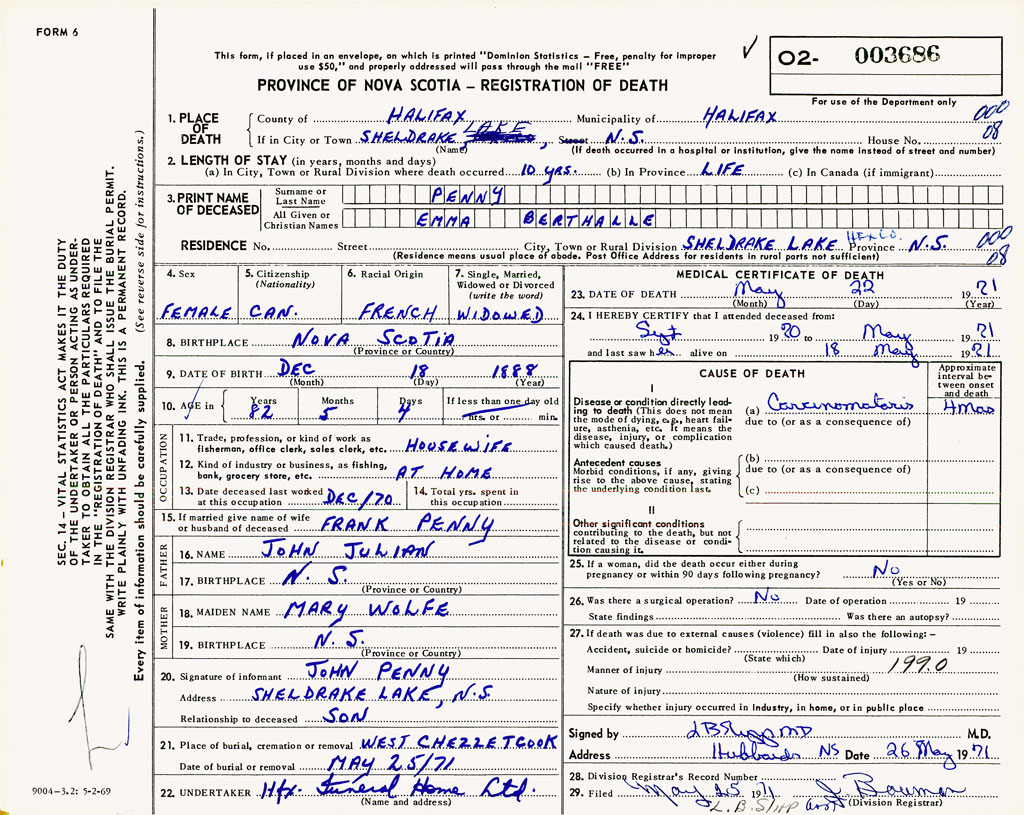 FORM 6
This form, if placed in an envelope, on which is printed "Dominion Statistics – Free, penalty for improper
use $50," and properly addressed will pass through the mail "FREE"
PROVINCE OF NOVA SCOTIA – REGISTRATION OF DEATH
✓
O2- 003686
For use of the Department only
1. PLACE OF DEATH
County of HALIFAX Municipality of HALIFAX 000
If in City or Town SHELDRAKE LAKE, Street N.S. House No. 08
(Name) (If death occurred in a hospital or institution, give the name instead of street and number)
2. LENGTH OF STAY (in years, months and days)
(a) In City, Town or Rural Division where death occurred 10 YRS. (b) In Province LIFE (c) In Canada (if immigrant)
3. PRINT NAME OF DECEASED
Surname or Last Name PENNY
All Given or Christian Names EMMA BERTHALLE
RESIDENCE No. Street City, Town or Rural Division SHELDRAKE LAKE HFX CO. Province N.S. 000
(Residence means usual place of abode. Post Office Address for residents in rural parts not sufficient) 08
4. Sex
FEMALE
5. Citizenship (Nationality)
CAN.
6. Racial Origin
FRENCH
7. Single, Married, Widowed or Divorced (write the word)
WIDOWED
8. BIRTHPLACE NOVA SCOTIA
(Province or Country)
9. DATE OF BIRTH DEC 18 1888
(Month) (Day) (Year)
10. AGE in Years 82 Months 5 Days 4 If less than one day old hrs. or min.
OCCUPATION
11. Trade, profession, or kind of work as
fisherman, office clerk, sales clerk, etc. HOUSEWIFE
12. Kind of industry or business, as fishing,
bank, grocery store, etc. AT HOME
13. Date deceased last worked
at this occupation DEC/70
14. Total yrs. spent in
this occupation
15. If married give name of wife
or husband of deceased FRANK PENNY
FATHER
16. NAME JOHN JULIAN
17. BIRTHPLACE N. S.
(Province or Country)
MOTHER
18. MAIDEN NAME MARY WOLFE
19. BIRTHPLACE N. S.
(Province or Country)
20. Signature of informant JOHN PENNY
Address SHELDRAKE LAKE, N.S
Relationship to deceased SON
21. Place of burial, cremation or removal WEST CHEZZETCOOK
Date of burial or removal MAY 25/71
22. UNDERTAKER Hfx. Funeral Home Ltd.
(Name and address)
MEDICAL CERTIFICATE OF DEATH
23. DATE OF DEATH May 22 1971
(Month) (Day) (Year)
24. I HEREBY CERTIFY that I attended deceased from:
Sept 1970 May 1971
and last saw her alive on 18 May 1971
CAUSE OF DEATH
Approximate interval between onset and death
I
Disease or condition directly leading to death (This does not mean the mode of dying, e.g., heart failure, asthenia, etc. It means the disease, injury, or complication which caused death.)
(a) Carcinomatosis 4 mos
due to (or as a consequence of)
Antecedent causes
Morbid conditions, if any, giving rise to the above cause, stating the underlying condition last.
(b)
due to (or as a consequence of)
(c)
II
Other significant conditions
contributing to the death, but not
related to the disease or condition causing it.
25. If a woman, did the death occur either during
pregnancy or within 90 days following pregnancy? No
(Yes or No)
26. Was there a surgical operation? No Date of operation 19
State findings Was there an autopsy?
27. If death was due to external causes (violence) fill in also the following: –
Accident, suicide or homicide? Date of injury 19
(State which)
Manner of injury 199.0
(How sustained)
Nature of injury
Specify whether injury occurred in industry, in home, or in public place
Signed by M.D.
Address Hubbards NS Date 26 May 1971
28. Division Registrar's Record Number
29. Filed May 25 1971 J. Bauman
(Division Registrar)
SEC. 14 – VITAL STATISTICS ACT MAKES IT THE DUTY
OF THE UNDERTAKER OR PERSON ACTING AS UNDER-
TAKER TO OBTAIN ALL THE PARTICULARS REQUIRED
IN THE "REGISTRATION OF DEATH" AND TO FILE THE
SAME WITH THE DIVISION REGISTRAR WHO SHALL ISSUE THE BURIAL PERMIT.
WRITE PLAINLY WITH UNFADING INK. THIS IS A PERMANENT RECORD.
Every item of information should be carefully supplied. (See reverse side for instructions.)
9004-3.2: 5-2-69